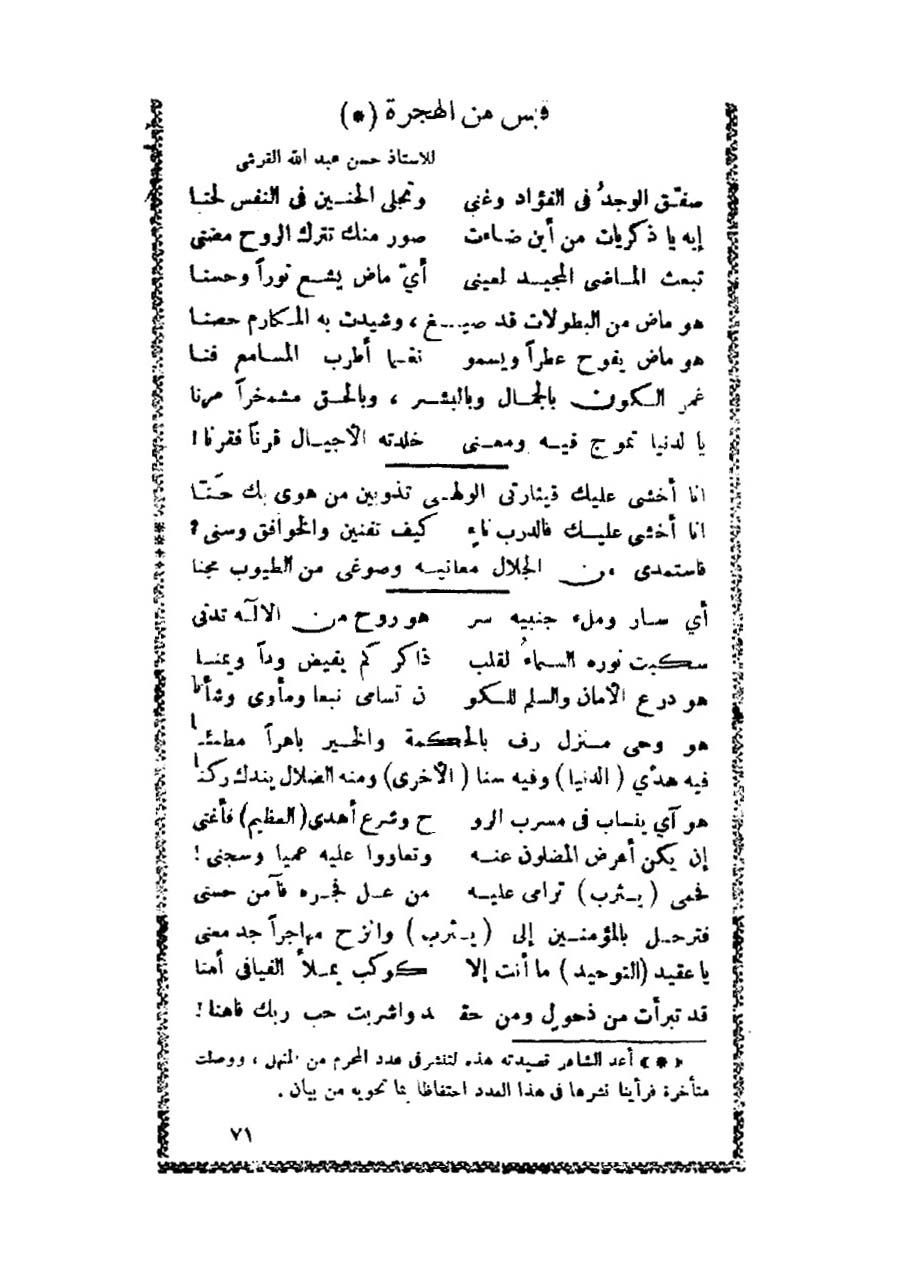 قبس من الهجرة (*)
للاستاذ حسن عبد الله القرشى
صفّق الوجدُ فى الفؤاد وغنى وتجلى الحنـين فى النفس لحنا
إيه يا ذكريات من أين ضاءت صور منك تترك الروح مضنى
تبعث المـاضى المجيـد لعينى أيّ ماض يشـع نوراً وحسنا
هو ماض من البطولات قد صيـغ ، وشيدت به المكارم حصنا
هو ماض يفوح عطراً ويسمو نغما أطرب المسامع فنا
غمر الـكون بالجمـال وبالبشـر ، وبالحـق مشمخراً مرنا
يا لدنيا تموج فيـه ومعـنى خلدته الأجيـال قرناً فقرنا !
انا أخشى عليك قيثارتى الولهـى تذوبين من هوى بك حَنّـا
انا أخشى عليـك فالدرب ناء كيف تفنين والخوافق وسنى ؟
فاستمدى من الجلال معانيـه وصوغى من الطيوب مجنا
أي سـار وملء جنبيه سر هو روح من الالَه تدنى
سكبت نوره السماءُ لقلب ذاكر كم يفيض وداً ويمنـا
هو درع الأمان والسلم للـكو ن تسامى نبعا ومأوى وشأنا
هو وحى مـنزل رف بالحـكمة والخـير باهراً مطمئنـا
فيه هدْي ( الدنيا ) وفيه سنا ( الأخرى ) ومنه الضلال يندك ركنا
هو آي ينساب فى مسرب الرو ح وشرع أهدى ( العظيم ) فأغنى
إن يكن أعرض المضلون عنـه وتعاووا عليه عميا وسجنى !
فحمى ( يـثرب ) ترامى عليـه من عـل فجـره فآمن حسنى
فترحـل بالمؤمنـين إلى ( يـثرب ) وانزح مهاجراً جد معنى
يا عقيد (التوحيد ) ما أنت إلا كوكب يمـلأ الفيافى أمنا
قد تبرأت من ذحول ومن حقـد واشربت حب ربك فاهنا !
« * » أعد الشاعر قصيدته هذه لتنشر فى عدد المحرم من المنهل ، ووصلت
متأخرة فرأينا نشرها فى هذا العدد احتفاظا بما تحويه من بيان .
٧١